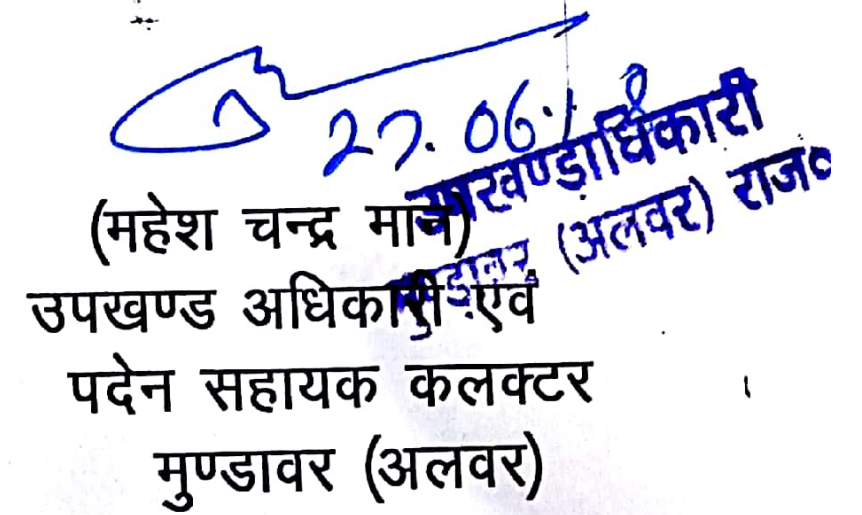 27.06.18
उपखण्डाधिकारी
मुण्डावर (अलवर) राज०
(महेश चन्द्र मान)
उपखण्ड अधिकारी एवं
पदेन सहायक कलक्टर
मुण्डावर (अलवर)